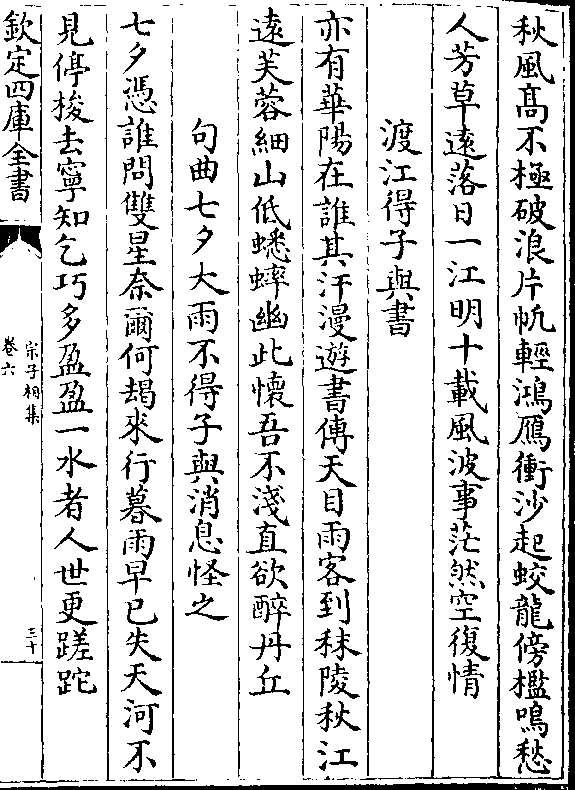 秋風高不極破浪片帆輕鴻鴈衝沙起蛟龍傍檻鳴愁
人芳草遠落日一江明十載風波事茫然空復情
渡江得子與書
亦有華陽在誰其汗漫遊書傳天目雨客到秣陵秋江
遠芙蓉細山低蟋蟀幽此懷吾不淺直欲醉丹丘
句曲七夕大雨不得子與消息怪之
七夕憑誰問雙星奈爾何朅來行暮雨早已失天河不
見停梭去寧知乞巧多盈盈一水者人世更蹉跎
欽定四庫全書
宗子相集
卷六
三十